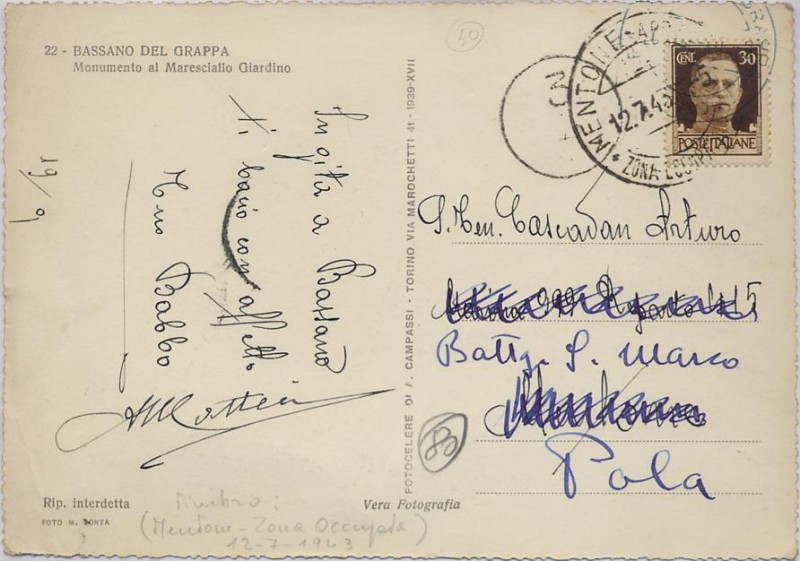 22 - BASSANO DEL GRAPPA
Monumento al Maresciallo Giardino
50
MENTONE
12.7.43
ZONA
CENT. 30
POSTE ITALIANE
In gita a Bassano
ti bacio con affetto
tuo Babbo
19/61
FOTOCELERE DI A. CAMPASSI - TORINO VIA MAROCHETTI 41 - 1939-XVII
S. Ten. Cascadan Arturo
Batt. S. Marco
Pola
83
Rip. interdetta
Vera Fotografia
FOTO M. ZONTA
Timbro:
(Mentone - Zona Occupata)
12-7-1943